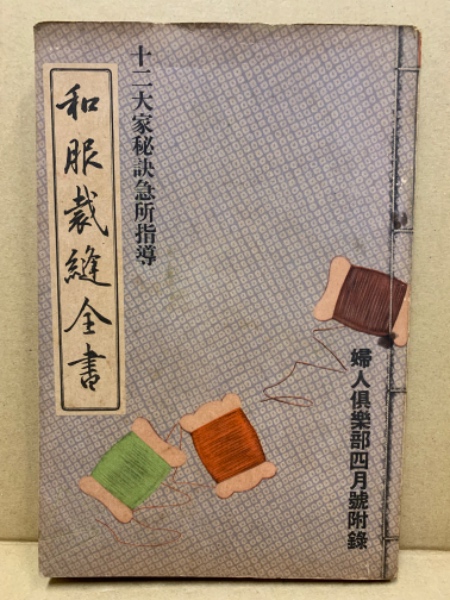 婦人俱樂部四月號附錄
十二大家秘訣急所指導
和服裁縫全書